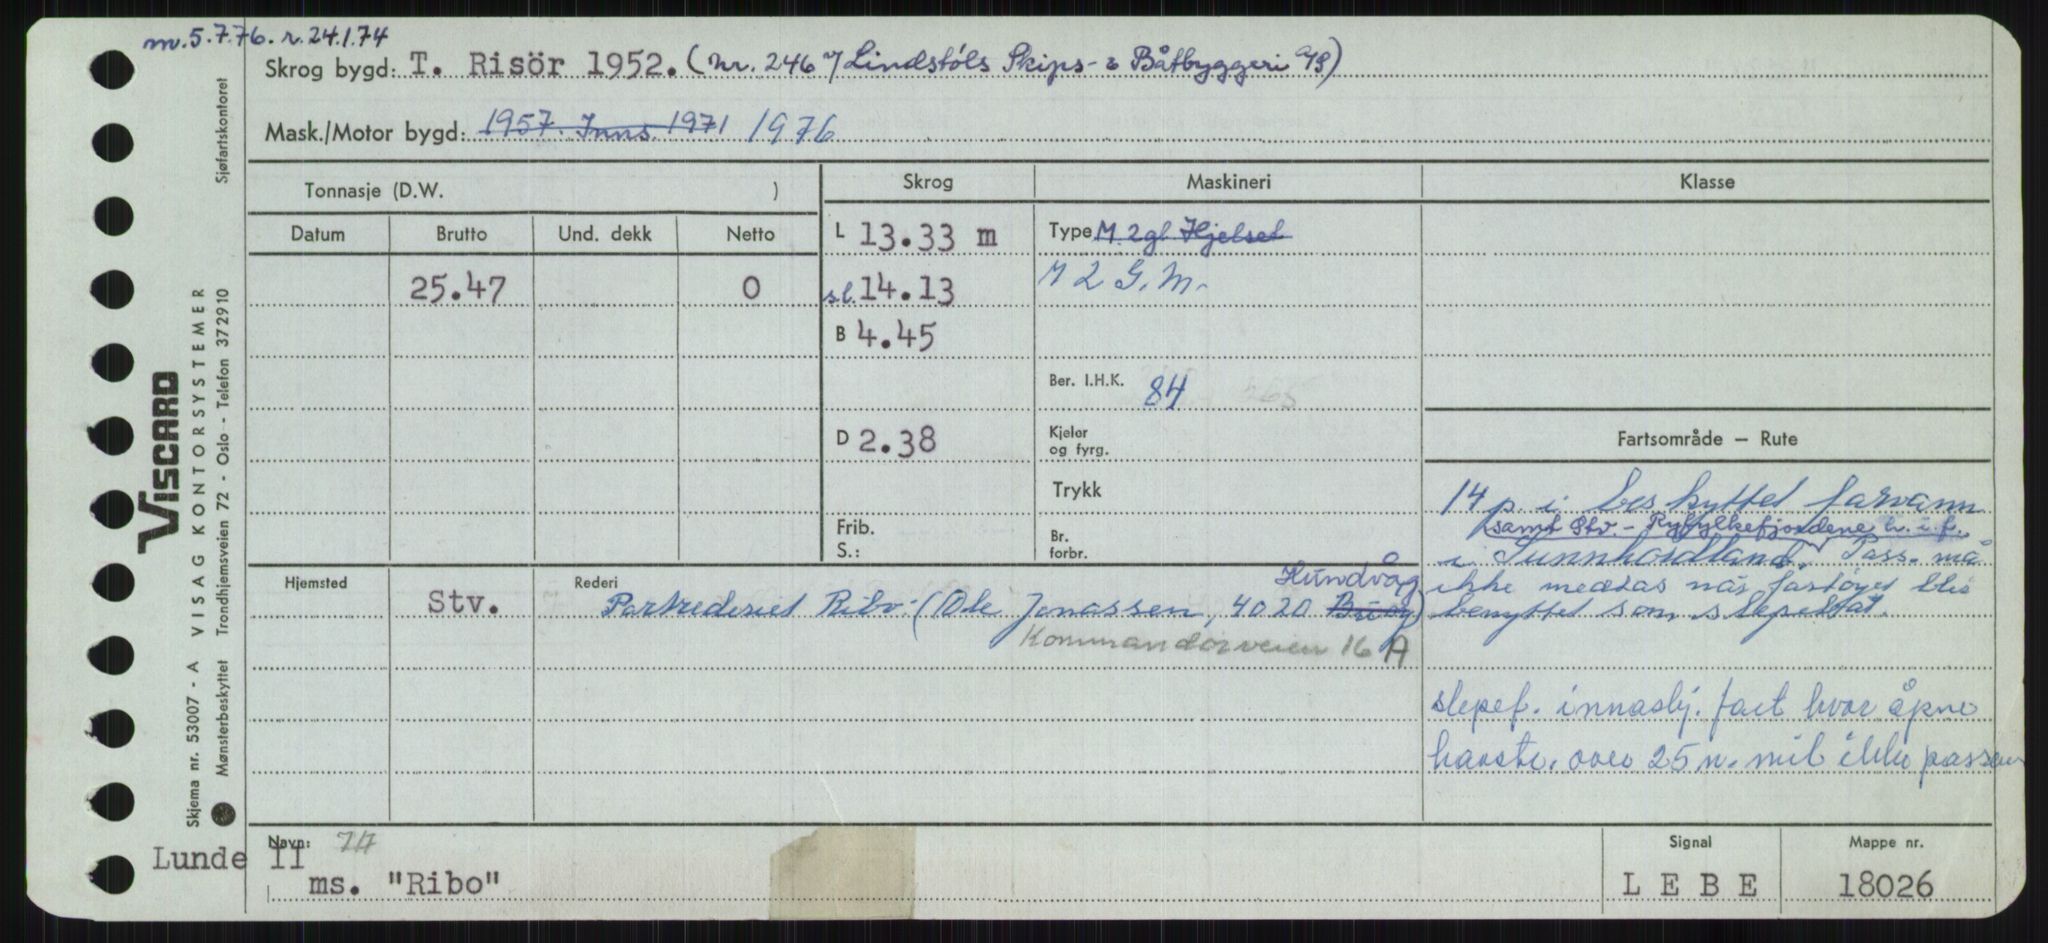 m. 5.7.76. r. 24.1.74
Skrog bygd: T. Risör 1952. (Nr. 246 v/ Lindstøls Skips- & Båtbyggeri A/S)
Mask./Motor bygd: 1957. Inns. 1971 1976
Tonnasje (D.W. )
Skrog
Maskineri
Klasse
Datum
Brutto
Und. dekk
Netto
25.47
0
L 13.33 m
s.l. 14.13
B 4.45
D 2.38
Frib.
S.:
Type M. 2gl. Hjelset
M 2 G.M.
Ber. I.H.K. 84
Kjeler
og fyrg.
Trykk
Br.
forbr.
Fartsområde – Rute
14 p. i beskyttet farvann
samt Stv. - Ryfylkefjordene
i Sunnhordland. Pass. må
ikke medtas når fartøyet blir
benyttet som slepebåt.
slepef. innaskj. fart hvor åpne
havstr. over 25 n. mil ikke passeres
Hjemsted
Stv.
Rederi
Hundvåg
Partrederiet Ribo (Ole Jonassen, 4020
Kommandørveien 16 A
Navn:
Lunde II
ms. "Ribo"
Signal
L E B E
Mappe nr.
18026
Sjøfartskontoret
VISCARD
VISAG KONTORSYSTEMER
Trondhjemsveien 72 - Oslo - Telefon 37 29 10
Skjema nr. 53007 - A
Mønsterbeskyttet